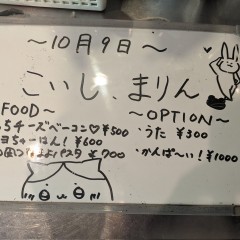 ～10月9日～
こいし、まりん
FOOD～
ちチーズベーコン♡¥500
ちゃーはん！¥600
パスタ ¥700
～OPTION～
・うた ¥300
・かんぱ～い！¥1000